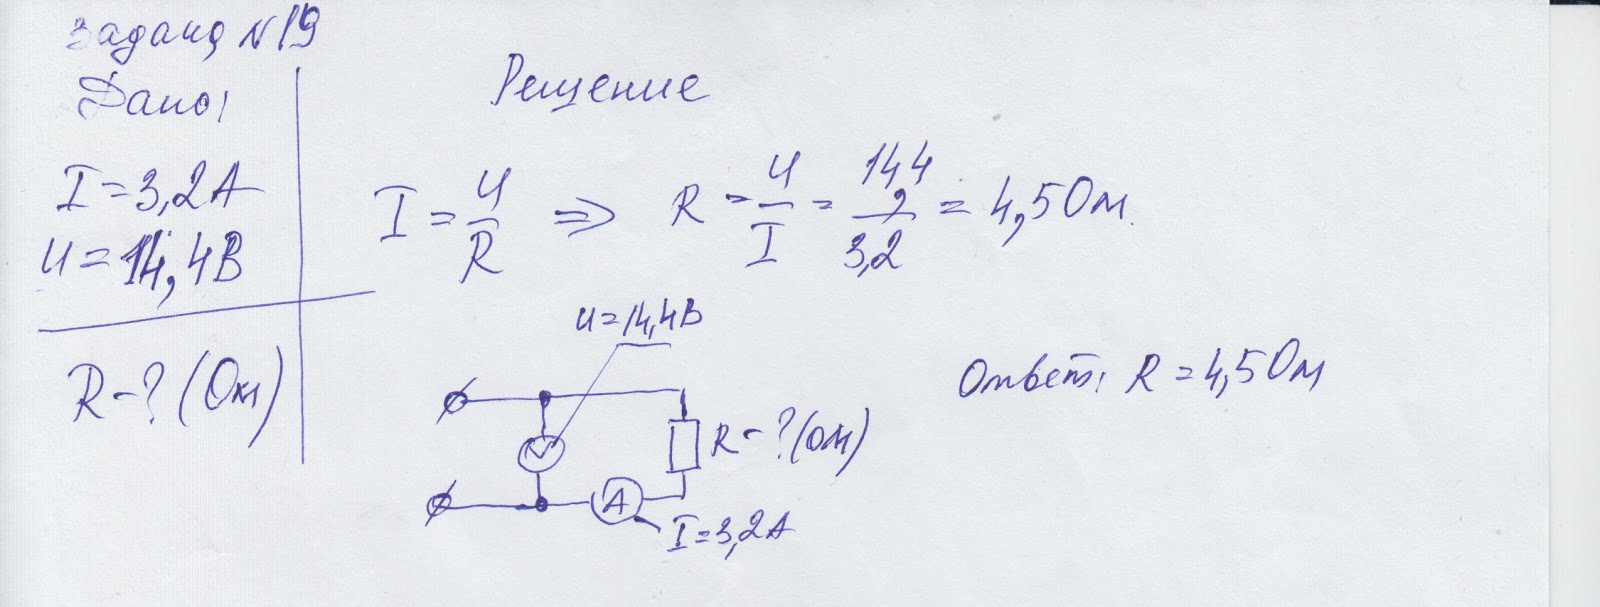 Задание №19
Дано:
I = 3,2А
U = 14,4В
R - ? (Ом)
Решение
I = U/R ⇒ R = U/I = 14,4/3,2 = 4,5 Ом.
U = 14,4В
V
R - ? (ом)
A
I = 3,2А
Ответ: R = 4,5 Ом